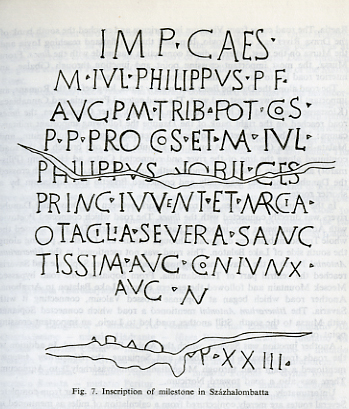 IMP · CAES ·
M · IVL · PHILIPPVS · P F ·
AVG P M · TRIB · POT · COS ·
P · P · PRO COS · ET · M · IVL ·
PHILIPPVS NOBIL · CES
PRINC · IVVENT · ET · MARCIA ·
OTACILIA · SEVERA · SANC
TISSIM · AVG · CONIVNX ·
AVG · N
ARAQ
P · XXIII ·
Fig. 7. Inscription of milestone in Százhalombatta